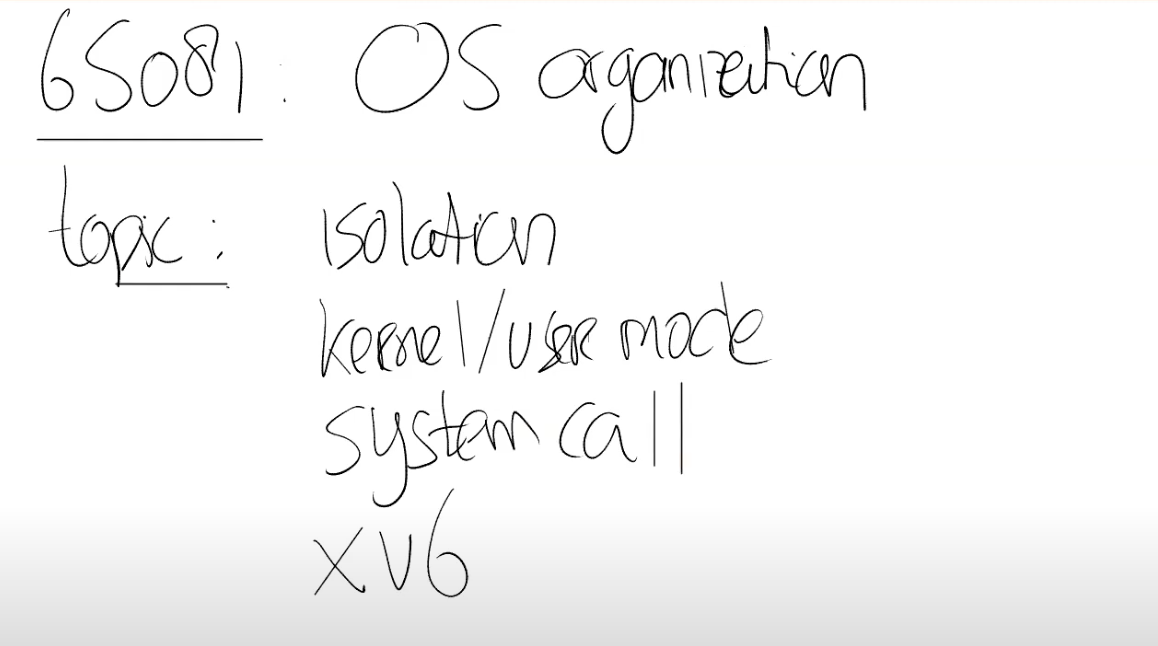 6S081: OS organization
topic: isolation
kernel/user mode
system call
xv6